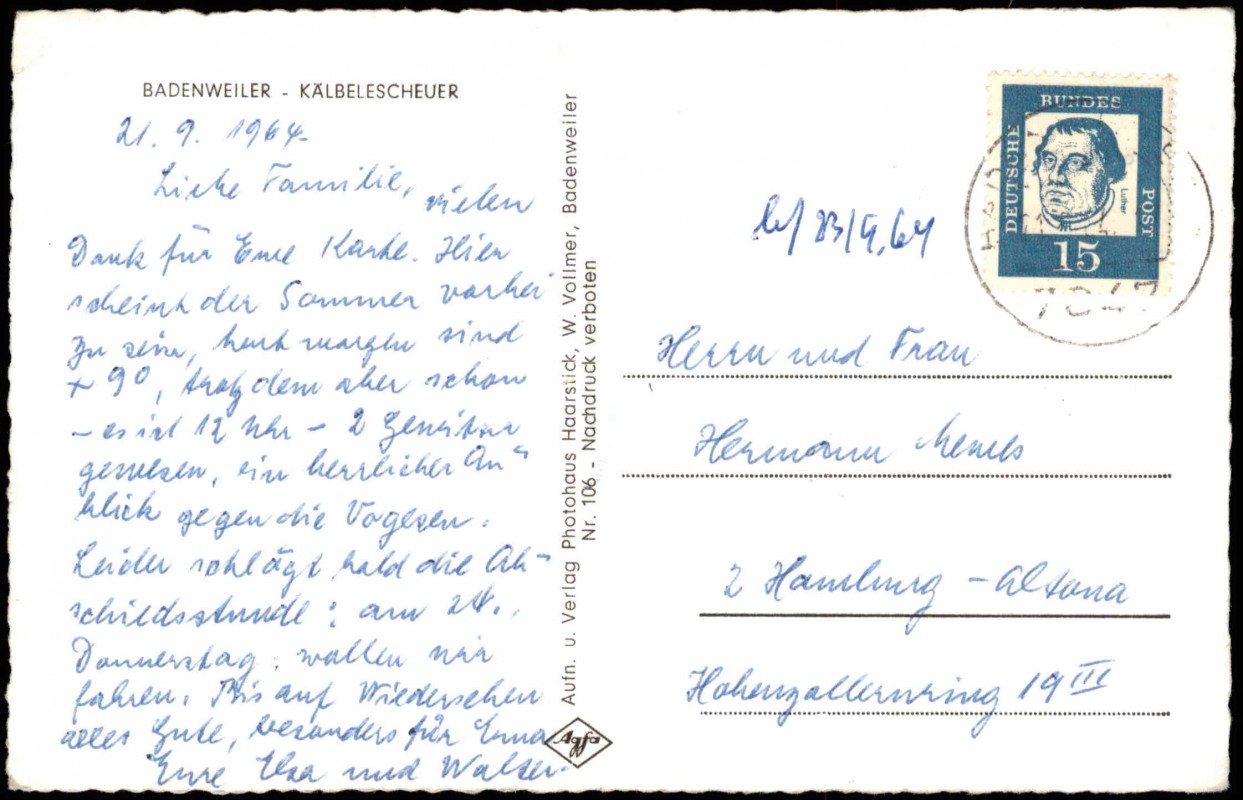 BADENWEILER - KÄLBELESCHEUER
21. 9. 1964.
Liebe Familie, vielen
Dank für Eure Karte. Hier
scheint der Sommer vorbei
zu sein, heut morgen sind
+ 9°, trotzdem aber schon
- es ist 12 Uhr - 2 Gewitter
gewesen, ein herrlicher An-
blick gegen die Vogesen.
Leider schlägt bald die Ab-
schiedsstunde: am 24.,
Donnerstag, wollen wir
fahren. Bis auf Wiedersehen
alles Gute, besonders für Erna
Eure Elsa und Walter.
Aufn. u. Verlag Photohaus Haarstick, W. Vollmer, Badenweiler
Nr. 106 - Nachdruck verboten
Agfa
DEUTSCHE
BUNDES
POST
Luther
15
23/9.64
Herrn und Frau
Hermann
2 Hamburg - Altona
Hohenzollernring 19 III